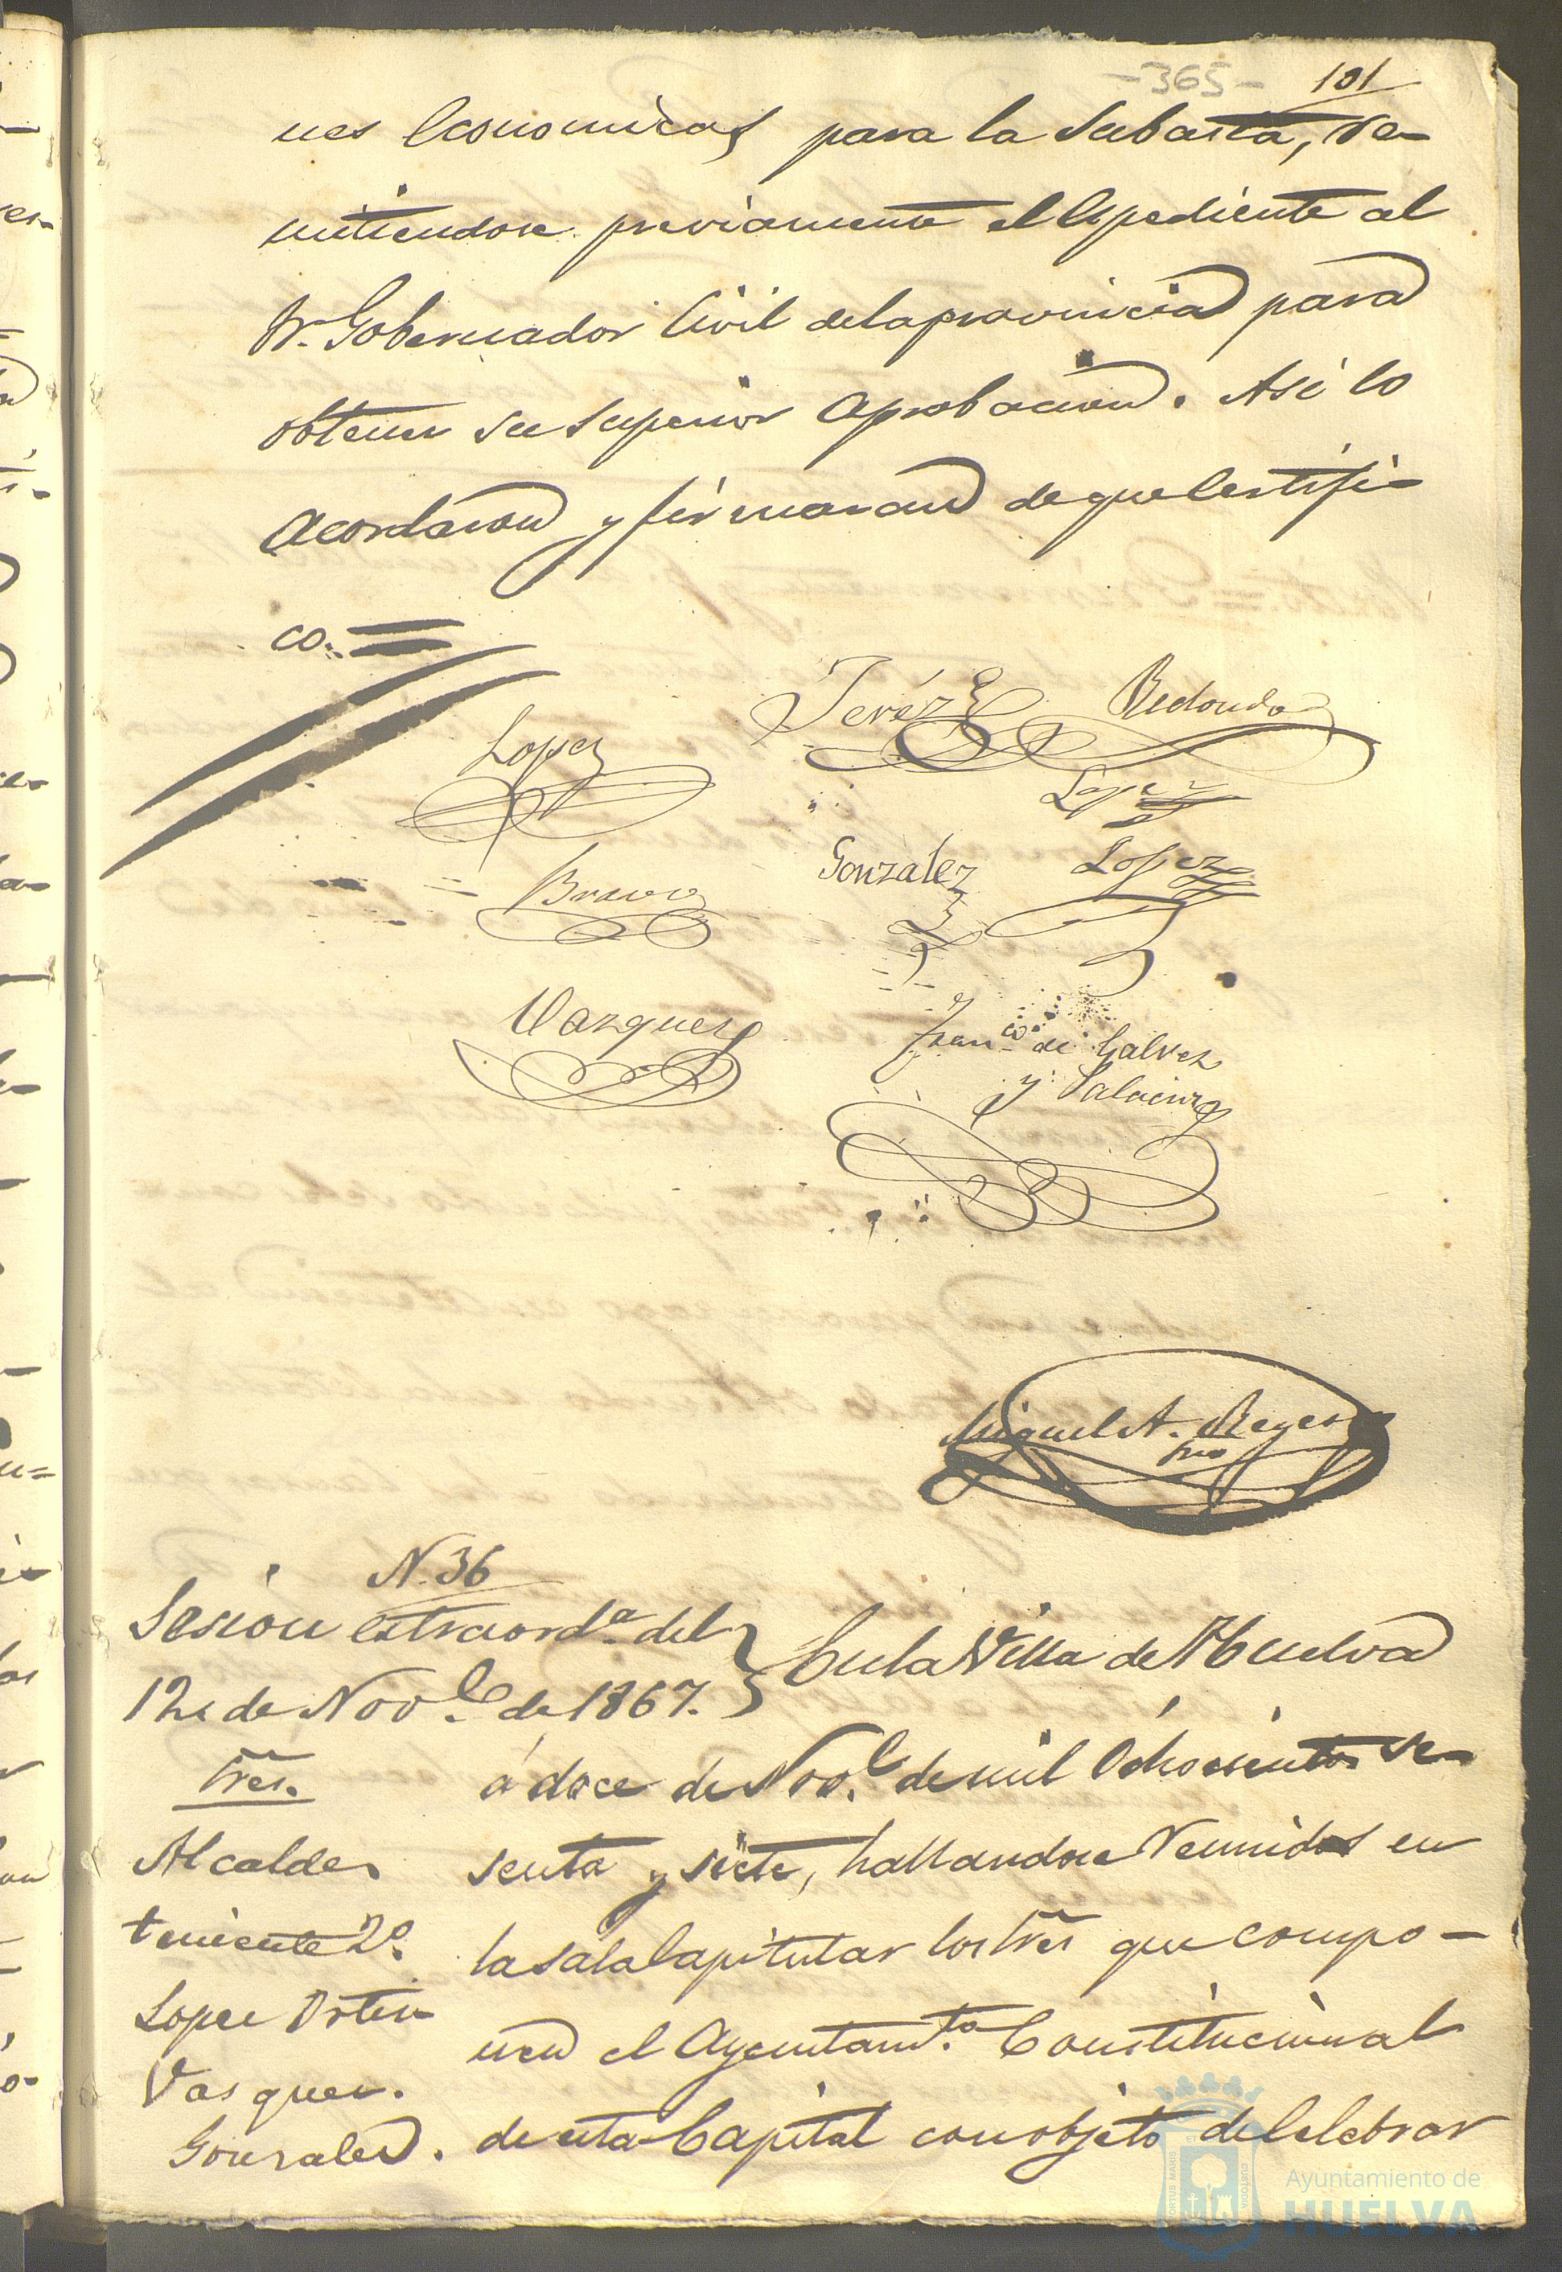 -365-
101
nes Economicas para la Subasta, re-
mitiendose previamente el Espediente al
Sr. Gobernador Civil de la provincia para
obtener su superior aprobacion. Asi lo
acordaron y firmaran de que Certifi-
co.
Jeréz Redondo
Lopez
Lopez
Gonzalez Lopez
Bravo
Vazquez
Franco de Galvez
y Palacios
Miguel A. Reyes
srio
N. 36
Sesion extraorda. del
12 de Nove. de 1867.
Sres.
Alcalde.
teniente 2º.
Lopez Orten
Vasquez.
Gonzalez.
En la Villa de Huelva
á doce de Nove. de mil Ochocientos se-
senta y siete, hallandose Reunidos en
la sala Capitular los Sres que compo-
nen el Ayuntamto. Constitucional
de esta Capital con objeto de Celebrar
PORTUS MARIS
CUSTODIA
Ayuntamiento de
HUELVA